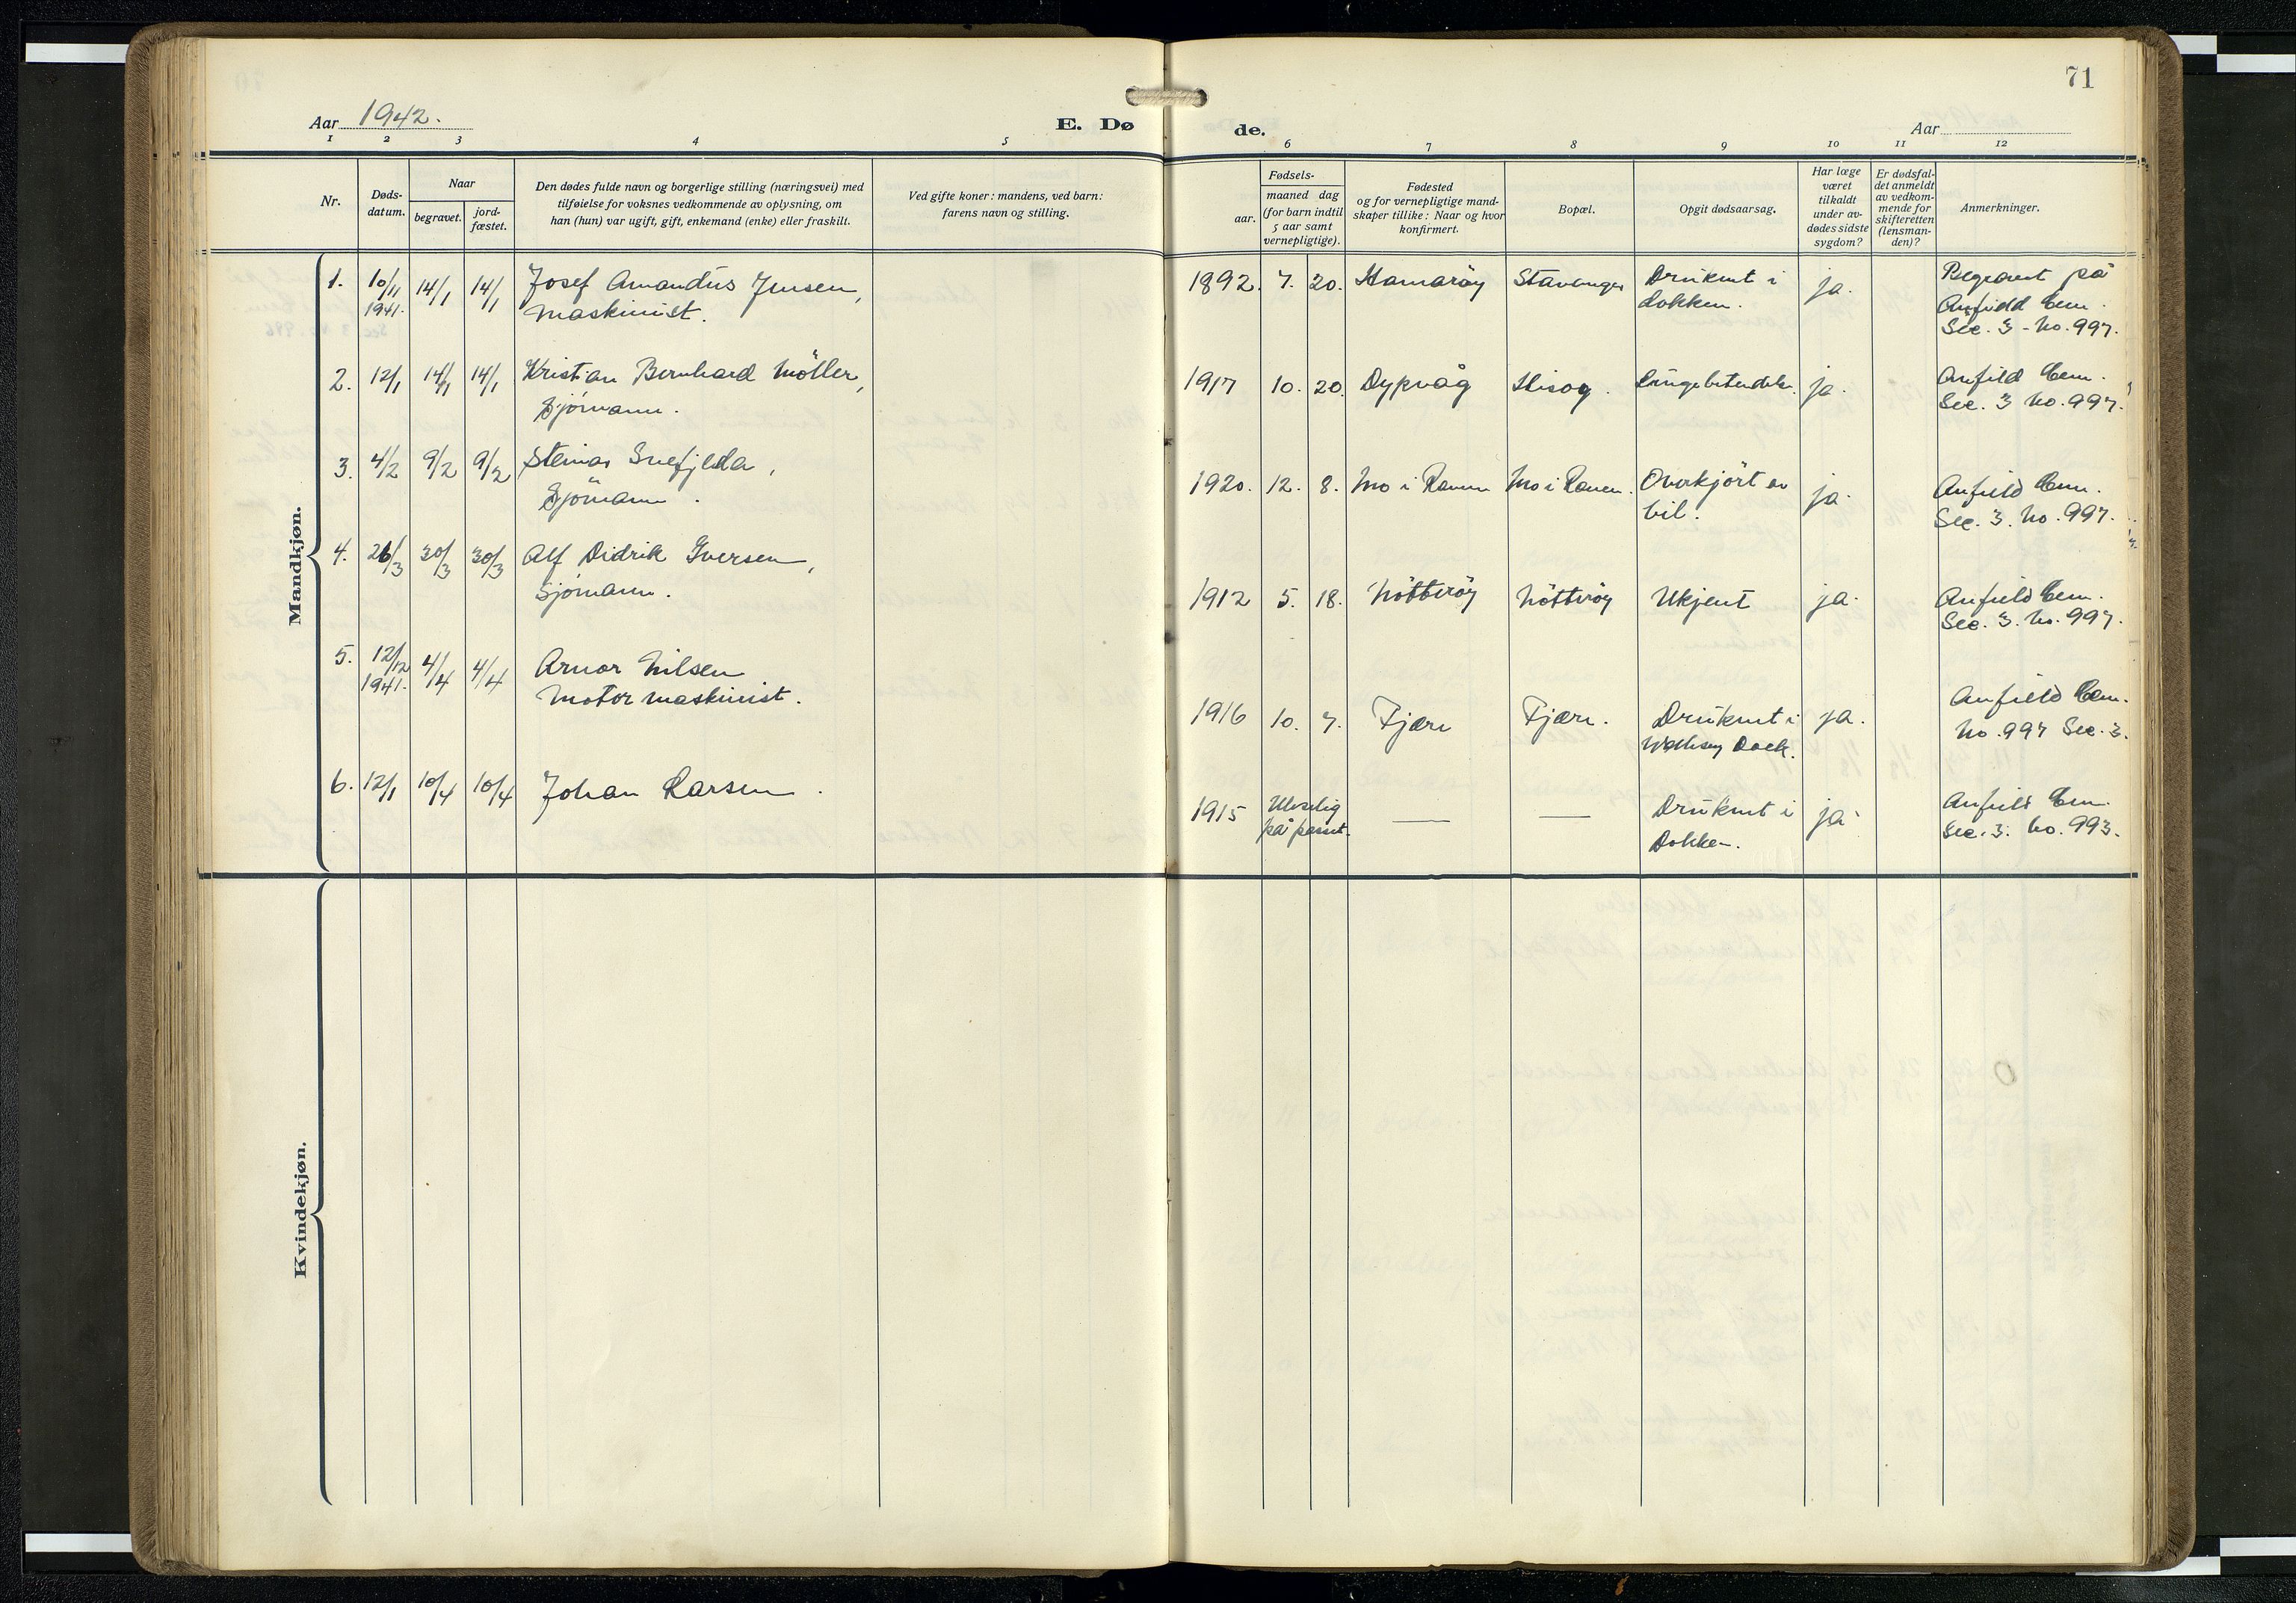 71
Aar 1942.
E. Dø
de.
Aar
1 2 3 4 5 6 7 8 9 10 11 12
Nr.
Døds-
datum.
Naar
begravet.
jord-
fæstet.
Den dødes fulde navn og borgerlige stilling (næringsvei) med
tilføielse for voksnes vedkommende av oplysning, om
han (hun) var ugift, gift, enkemand (enke) eller fraskilt.
Ved gifte koner: mandens, ved barn:
farens navn og stilling.
Fødsels-
aar.
maaned dag
(for barn indtil
5 aar samt
vernepligtige).
Fødested
og for vernepligtige mand-
skaper tillike: Naar og hvor
konfirmert.
Bopæl.
Opgit dødsaarsag.
Har læge
været
tilkaldt
under av-
dødes sidste
sygdom?
Er dødsfal-
det anmeldt
av vedkom-
mende for
skifteretten
(lensman-
den)?
Anmerkninger.
Mandkjøn.
1. 10/11 14/1 14/1 Josef Amandus Jensen, 1892. 7. 20. Hamarøy Stavanger Druknet i ja. Begravet på
1941. Maskinist. dokken. Anfield Cem.
Sec. 3 - No. 997.
2. 12/1 14/1 14/1 Kristian Bernhard Möller, 1917 10. 20. Dypvåg Hisøy. ja. Anfield Cem.
Sjömann. Sec. 3 No. 997.
3. 4/2 9/2 9/2 Steinar Snefjella, 1920. 12. 8. Mo i Ranen Mo i Ranen. Overkjört av ja. Anfield Cem.
Sjömann. bil. Sec. 3. No. 997.
4. 26/3 30/3 30/3 Alf Didrik Iversen, 1912 5. 18. Nötteröy Nötteröy Ukjent ja. Anfield Cem.
Sjömann. Sec. 3. No. 997.
5. 12/12 4/4 4/4 Arnor Nilsen 1916 10. 7. Fjære Fjære. Druknet i ja. Anfield Cem.
1941. Motor maskinist. Dock. No. 997 Sec. 3.
6. 12/1 10/4 10/4 Johan Larsen. 1915 Uleselig — — Druknet i ja. Anfield Cem.
på passet. Dokken. Sec. 3. No. 993.
Kvindekjøn.